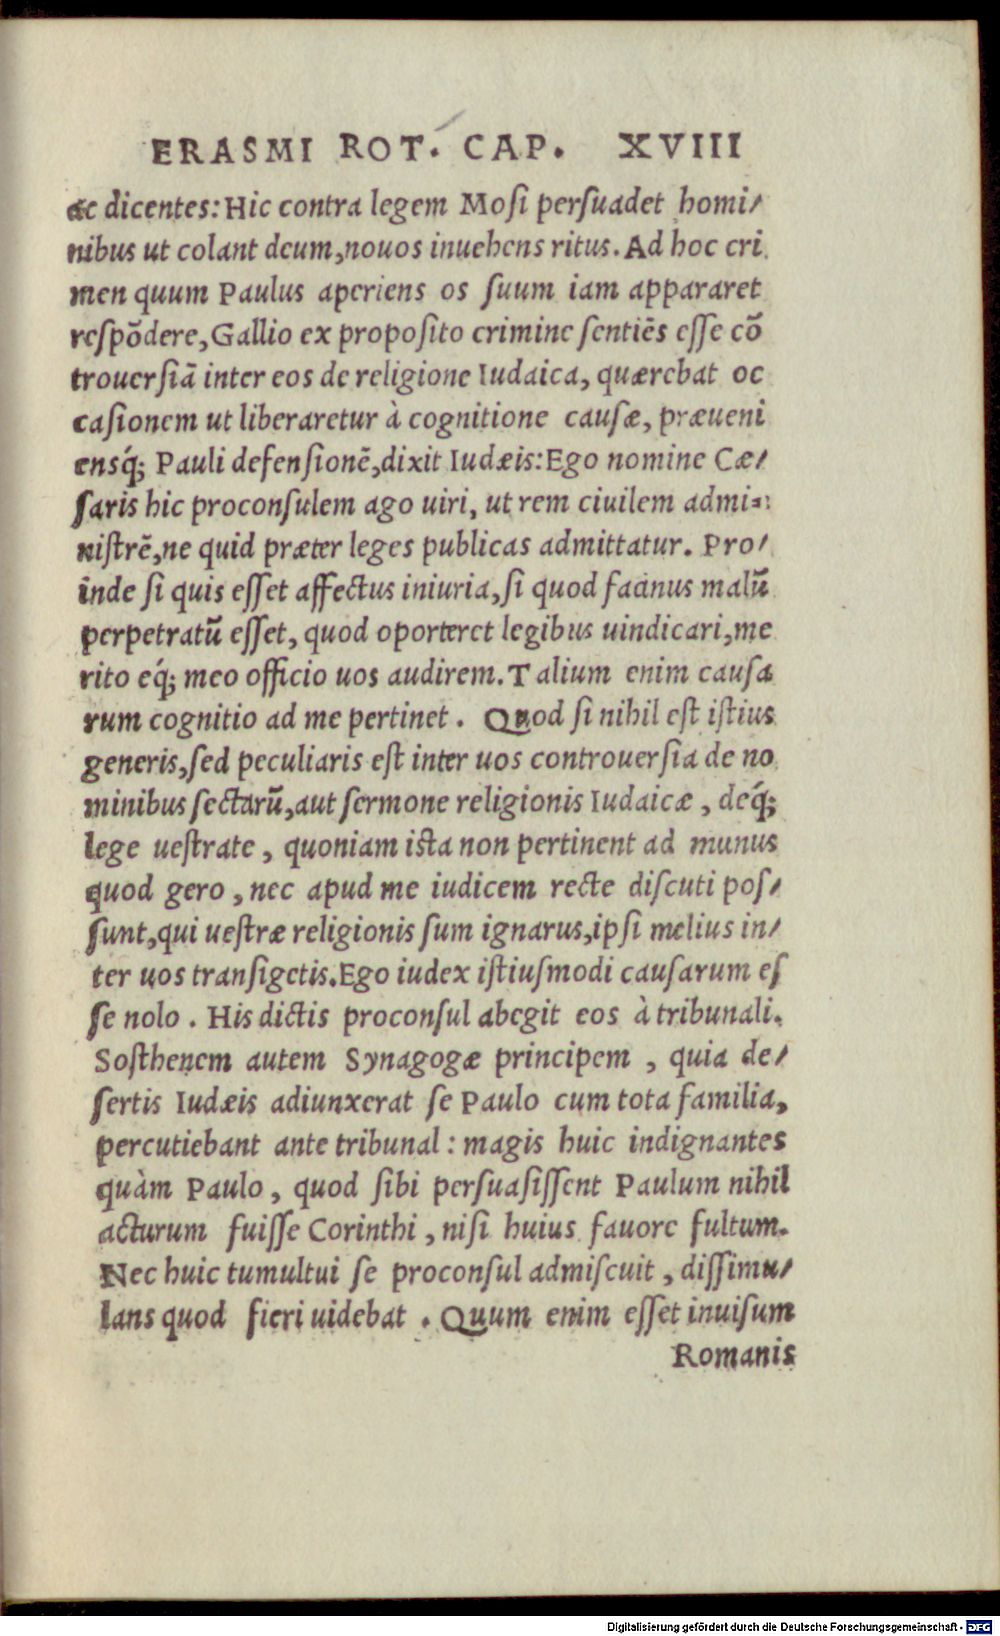 ERASMI ROT. CAP. XVIII
ac dicentes: Hic contra legem Mosi persuadet homi/
nibus ut colant deum, nouos inuehens ritus. Ad hoc cri
men quum Paulus aperiens os suum iam appararet
respõdere, Gallio ex proposito crimine sentiẽs esse cõ
trouersiã inter eos de religione Iudaica, quærebat oc
casionem ut liberaretur à cognitione causæ, præueni
ensq́; Pauli defensionẽ, dixit Iudæis: Ego nomine Cæ/
saris hic proconsulem ago uiri, ut rem ciuilem admi=
nistrẽ, ne quid præter leges publicas admittatur. Pro/
inde si quis esset affectus iniuria, si quod facinus malũ
perpetratũ esset, quod oporteret legibus uindicari, me
rito eq́; meo officio uos audirem. Talium enim causa
rum cognitio ad me pertinet. Quod si nihil est istius
generis, sed peculiaris est inter uos controuersia de no
minibus sectarũ, aut sermone religionis Iudaicæ, deq́;
lege uestrate, quoniam ista non pertinent ad munus
quod gero, nec apud me iudicem recte discuti pos/
sunt, qui uestræ religionis sum ignarus, ipsi melius in/
ter uos transigetis. Ego iudex istiusmodi causarum es
se nolo. His dictis proconsul abegit eos à tribunali.
Sosthenem autem Synagogæ principem, quia de/
sertis Iudæis adiunxerat se Paulo cum tota familia,
percutiebant ante tribunal: magis huic indignantes
quàm Paulo, quod sibi persuasissent Paulum nihil
acturum fuisse Corinthi, nisi huius fauore fultum.
Nec huic tumultui se proconsul admiscuit, dissimu/
lans quod fieri uidebat. Quum enim esset inuisum
Romanis
Digitalisierung gefördert durch die Deutsche Forschungsgemeinschaft - DFG